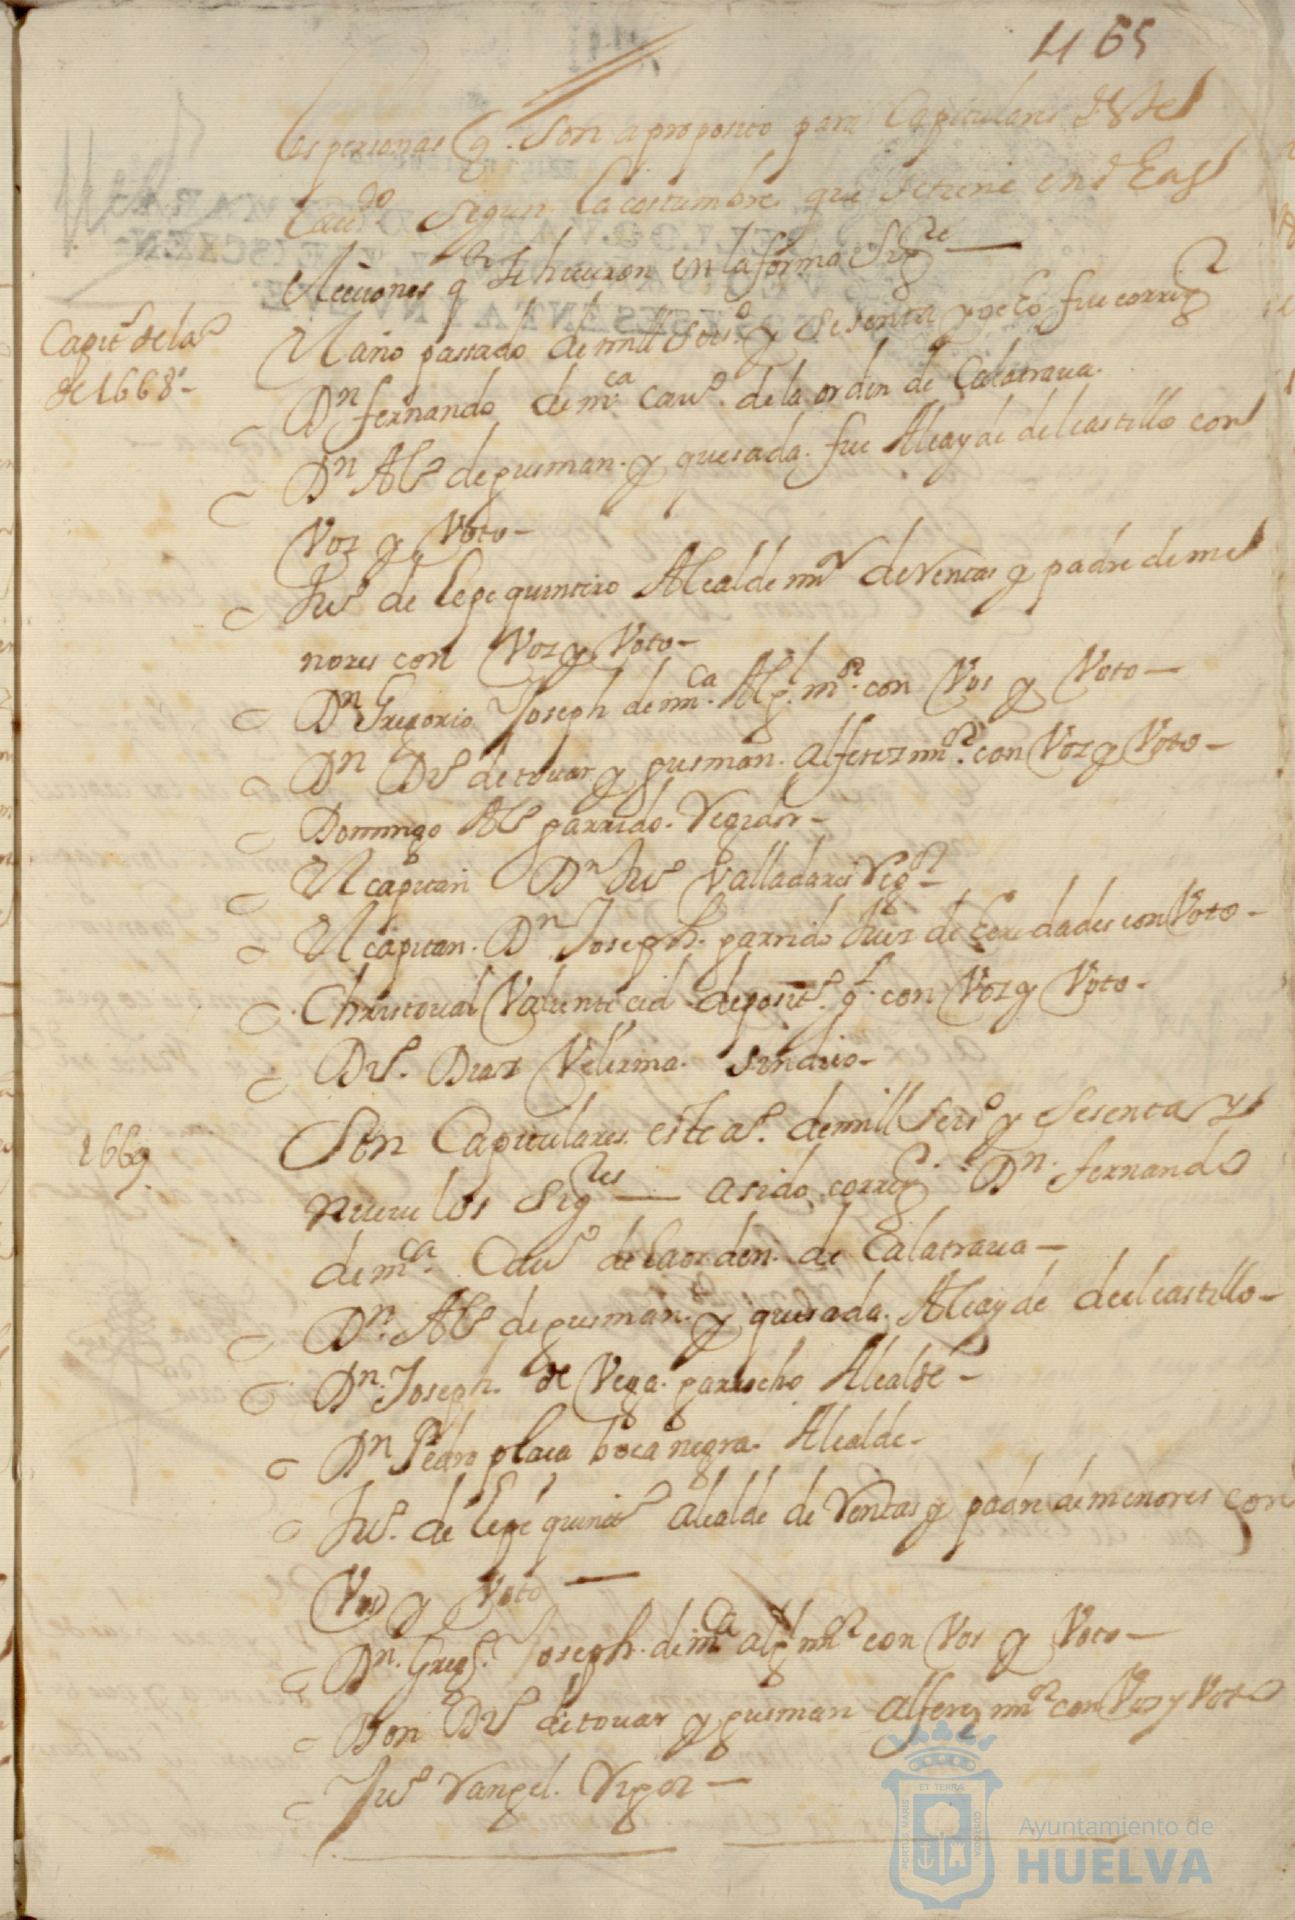 465
las personas q. son a proposito para Capitulares deste
Caudo segun la costumbre que se tiene en las
elecciones q se hicieron en la forma sigte —
Capits de la
de 1668 -
El año passado de mill seisº y sesenta y ocho fue corregr
Dn fernando de mca cauº. de la orden de Calatraua.
Dn Alº de gusman. y quesada. fue Alcayde del castillo con
Voz y Voto -
Juº de lepe quintero Alcalde mr de Ventas y padre de me
nores con Voz y Voto -
Dn Gregorio Joseph de mca. Algl. mor. con Vos y Voto —
Dn Dº de touar y gusman. alferez mor. con Voz y Voto -
Domingo Alº garrido. Regidor -
El capitan Dn Juº Valladares Regor -
El capitan. Dn Joseph. garrido Juez de heredades con Voto -
Christoual Valiente cid depositº. gl. con Voz y Voto -
Dº. Diaz Velerma. sindico -
1669
Son Capitulares este aº. de mill seisº y sesenta y
nueue los sigtes — a sido corregr. Dn. fernando
de mca. Cauº de la orden. de Calatraua —
Dn. Alº de gusman. y quesada. Alcayde del castillo -
Dn. Joseph. de Vega. garrocho Alcalde -
Dn Pedro plaça boca negra. Alcalde -
Juº. de lepe quintº alcalde de Ventas y padre de menores con
Vos y Voto —
Dn. Gregº. Joseph. de mca algl mor con Vos y Voto —
Don Dº de touar y gusman alferez mor con Voz y Voto
Juº Rangel. Regor —
PORTUS MARIS ET TERRAE CUSTODIA
Ayuntamiento de
HUELVA